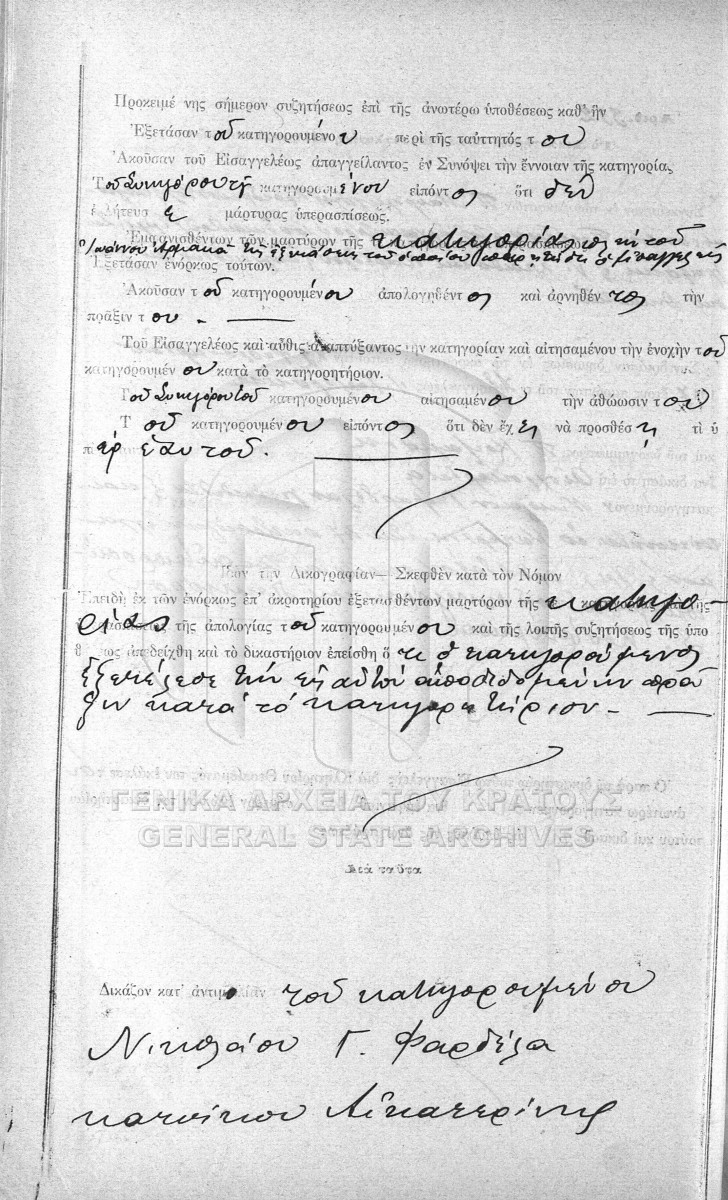 Προκειμένης σήμερον συζητήσεως ἐπὶ τῆς ἀνωτέρω ὑποθέσεως καθ' ἣν
Ἐξετάσαν τοῦ κατηγορουμένου περὶ τῆς ταὐτητός του
Ἀκοῦσαν τοῦ Εἰσαγγελέως ἀπαγγείλαντος ἐν Συνόψει τὴν ἔννοιαν τῆς κατηγορίας
Τοῦ Συνηγόρου τοῦ κατηγορουμένου εἰπόντος ὅτι δὲν
μάρτυρας ὑπερασπίσεως.
Ἐμφανισθέντων τῶν μαρτύρων τῆς κατηγορίας πλὴν τοῦ
Ἰωάννου τῆς ἐξετάσεως τοῦ ὁποίου
Ἐξετάσαν ἐνόρκως τούτων.
Ἀκοῦσαν τοῦ κατηγορουμένου ἀπολογηθέντος καὶ ἀρνηθέντος τὴν
πρᾶξίν του. —
Τοῦ Εἰσαγγελέως καὶ αὖθις ἀναπτύξαντος τὴν κατηγορίαν καὶ αἰτησαμένου τὴν ἐνοχὴν τοῦ
κατηγορουμένου κατὰ τὸ κατηγορητήριον.
Τοῦ Συνηγόρου τοῦ κατηγορουμένου αἰτησαμένου τὴν ἀθώωσιν του
Τοῦ κατηγορουμένου εἰπόντος ὅτι δὲν ἔχει νὰ προσθέσῃ τι ὑ
πὲρ ἑαυτοῦ. —
Ἰδὸν τὴν Δικογραφίαν — Σκεφθὲν κατὰ τὸν Νόμον
Ἐπειδὴ ἐκ τῶν ἐνόρκως ἐπ' ἀκροτηρίου ἐξετασθέντων μαρτύρων τῆς κατηγο-
ρίας τῆς ἀπολογίας τοῦ κατηγορουμένου καὶ τῆς λοιπῆς συζητήσεως τῆς ὑπο
θ ως ἀπεδείχθη καὶ τὸ δικαστήριον ἐπείσθη ὅτι ὁ κατηγορούμενος
ἐξετέλεσε τὴν εἰς αὐτὸν ἀποδιδομένην πρᾶ
ξιν κατὰ τὸ κατηγορητήριον. —
ΓΕΝΙΚΑ ΑΡΧΕΙΑ ΤΟΥ ΚΡΑΤΟΥΣ
GENERAL STATE ARCHIVES
Μετὰ ταῦτα
Δικάζον κατ' ἀντιμωλίαν τοῦ κατηγορουμένου
Νικολάου Γ. Φαρδέλα
κατοίκου Αἰκατερίνης